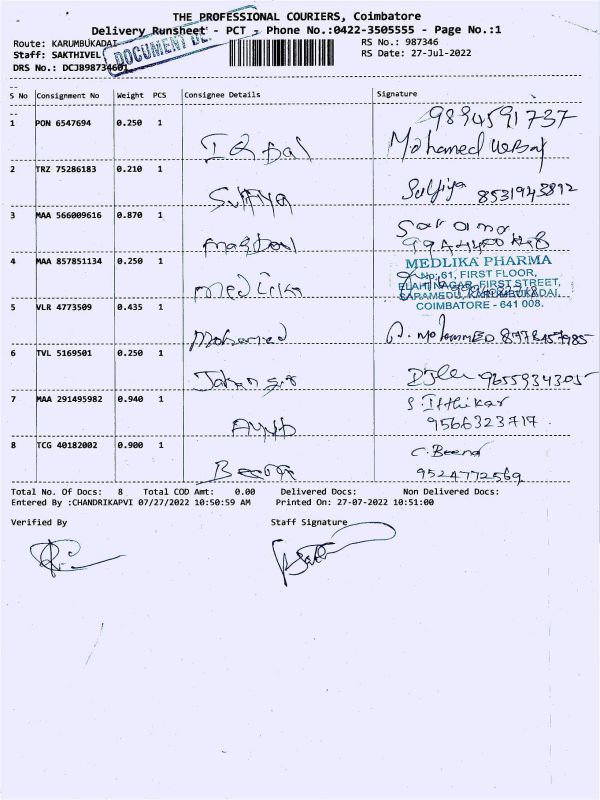 THE PROFESSIONAL COURIERS, Coimbatore
Delivery Runsheet - PCT - Phone No.:0422-3505555 - Page No.:1
Route: KARUMBUKADAI
RS No.: 987346
Staff: SAKTHIVEL
RS Date: 27-Jul-2022
DRS No.: DCJ8987346
DOCUMENT DE
S No Consignment No Weight PCS Consignee Details Signature
9894591737
1 PON 6547694 0.250 1
Iqbal Mohamed
2 TRZ 75286183 0.210 1
Sulfiya 8531943892
3 MAA 566009616 0.870 1
4 MAA 857851134 0.250 1
Medlika
MEDLIKA PHARMA
No: 61, FIRST FLOOR,
ELAHI NAGAR, FIRST STREET,
SARAMEDU, KARUMBUKADAI,
COIMBATORE - 641 008.
5 VLR 4773509 0.435 1
Mohamed
6 TVL 5169501 0.250 1
9655934305
7 MAA 291495982 0.940 1
S. Ifthikar
9566323717
8 TCG 40182002 0.900 1
C. Beena
9524772569
Total No. Of Docs: 8 Total COD Amt: 0.00 Delivered Docs: Non Delivered Docs:
Entered By :CHANDRIKAPVI 07/27/2022 10:50:59 AM Printed On: 27-07-2022 10:51:00
Verified By Staff Signature